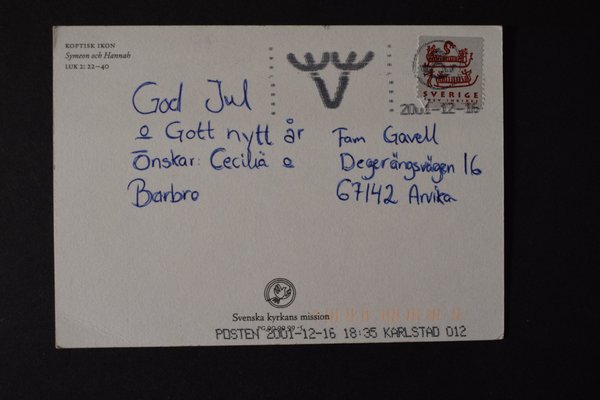 KOPTISK IKON
Symeon och Hannah
LUK 2: 22–40
SVERIGE
2001-12-16
God Jul
o Gott nytt år
Önskar: Cecilia o
Barbro
Fam Gavell
Degerängsvägen 16
67142 Arvika
Svenska kyrkans mission
POSTEN 2001-12-16 18:35 KARLSTAD 012